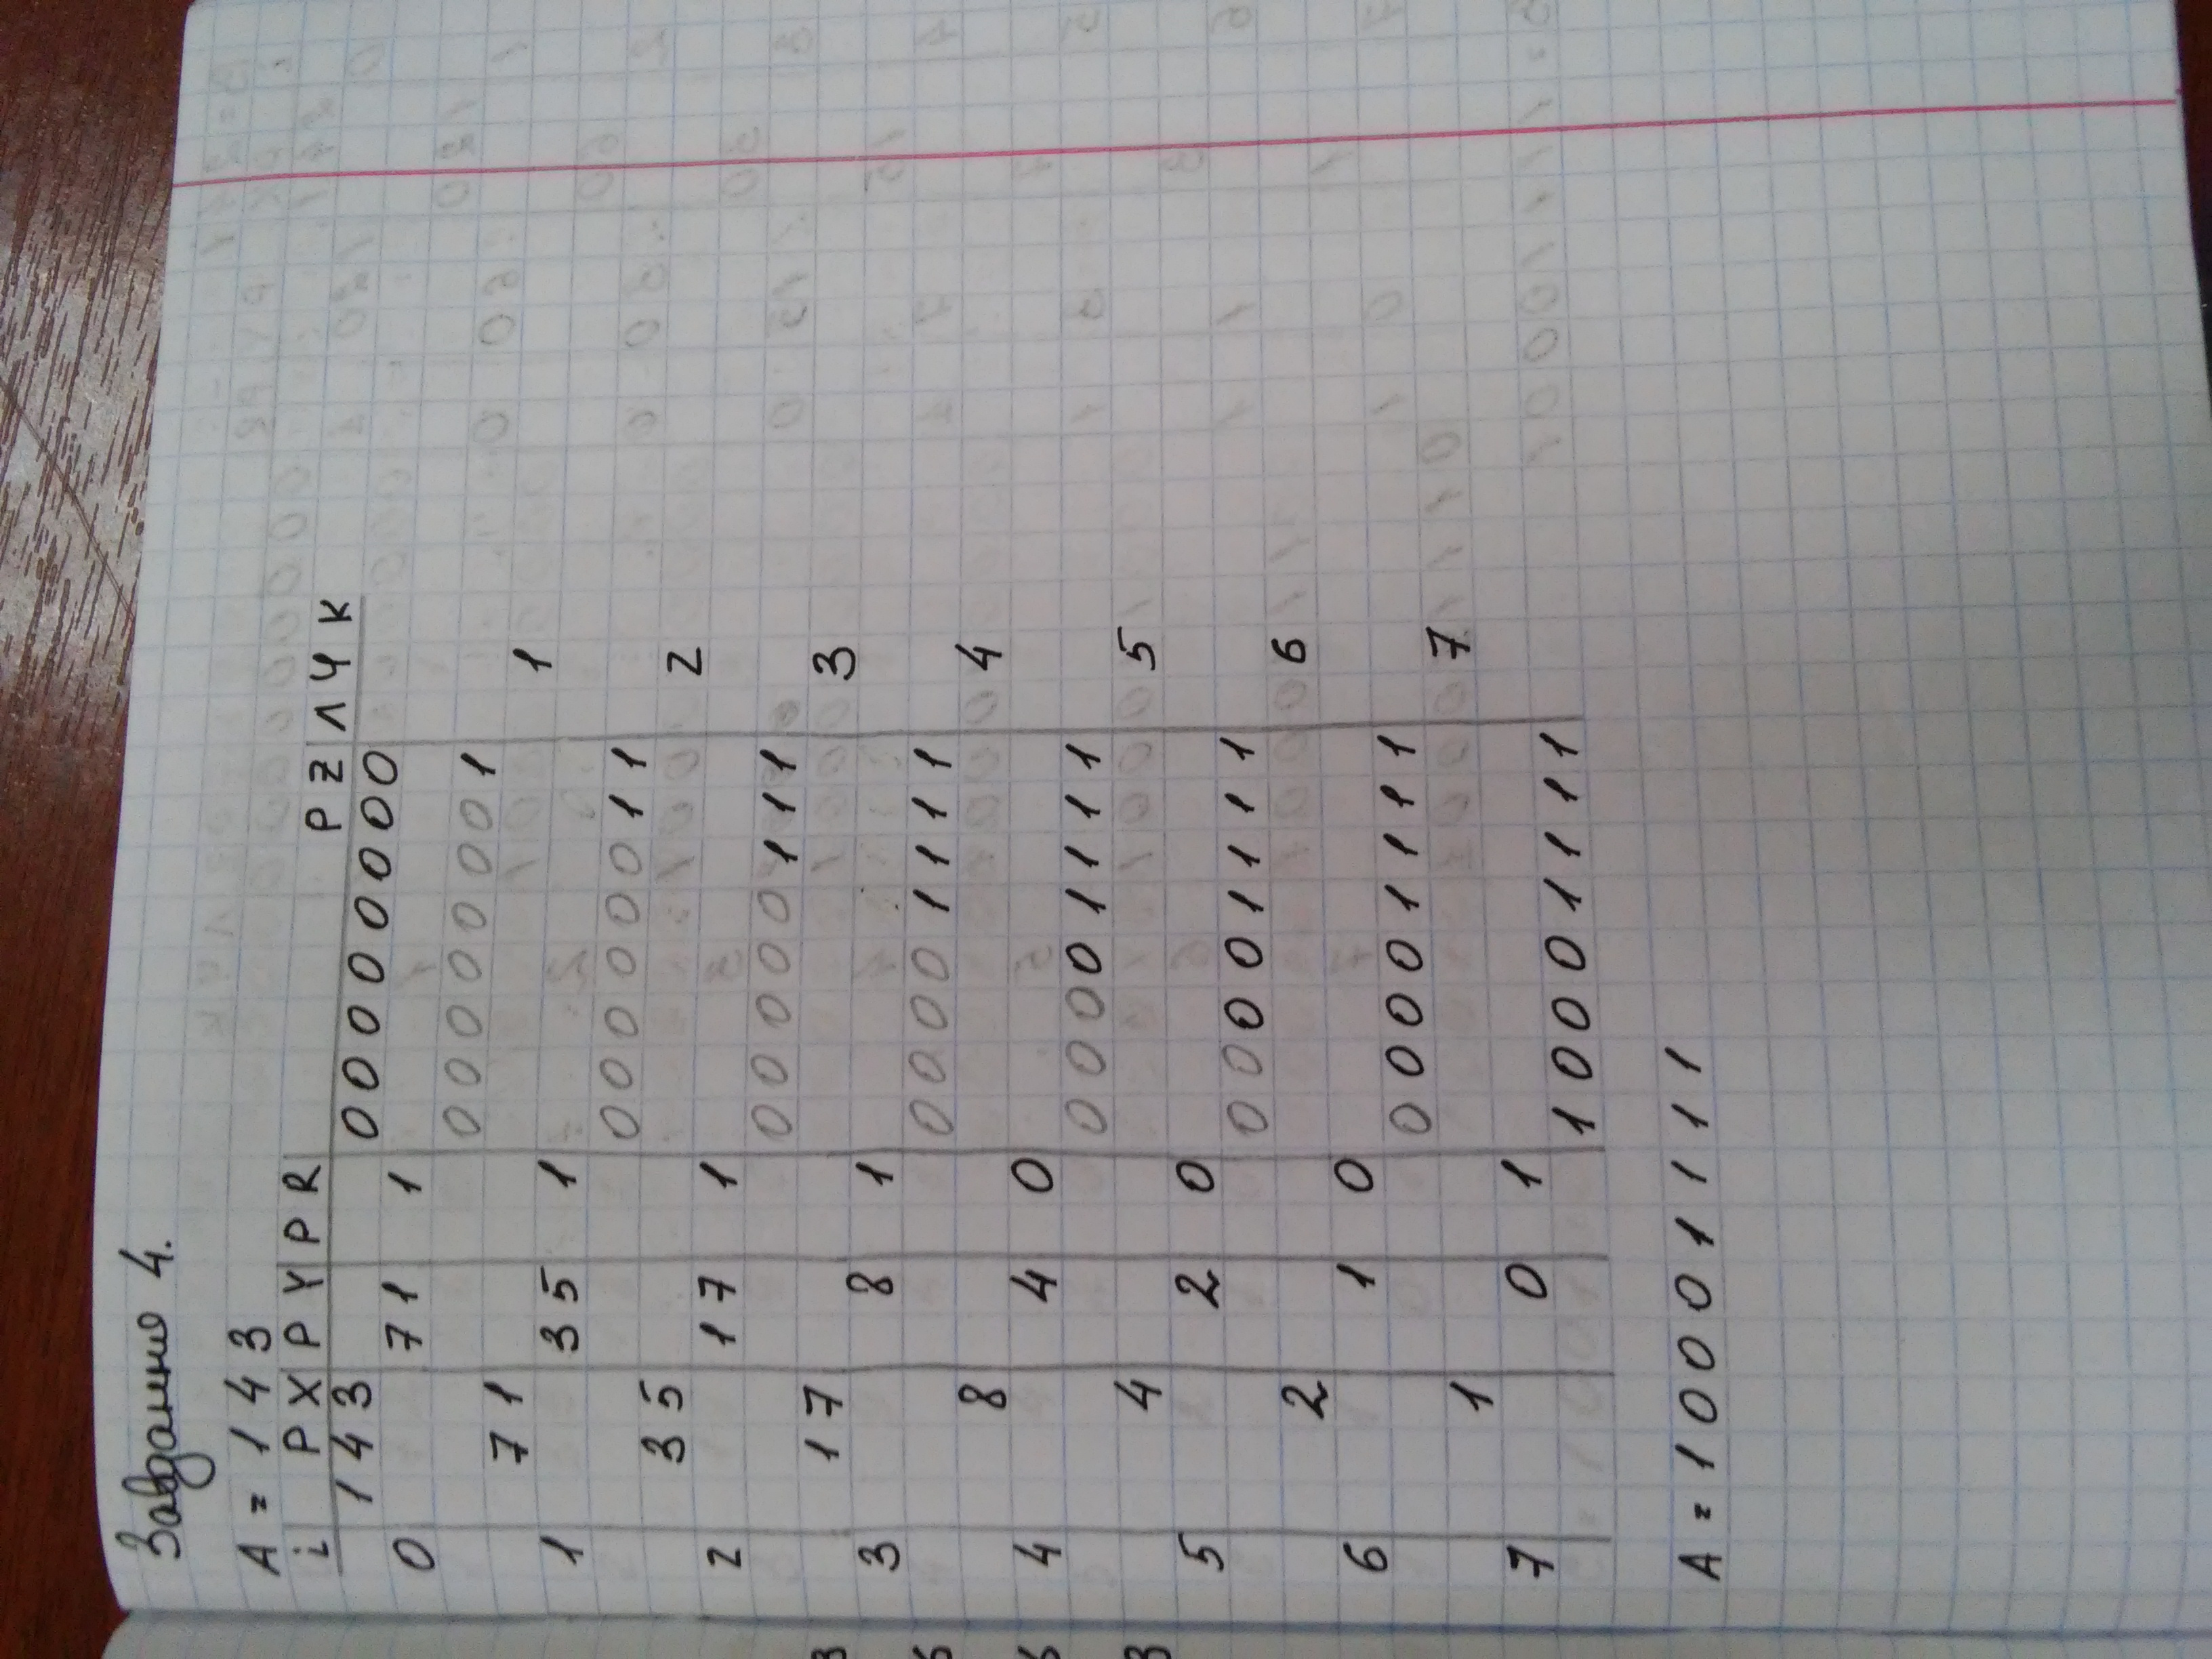 Завдання 4.
A = 143
i PX PY PR PZ ЛЧК
143 00000000
0 71 1
00000001
71 1
1 35 1
00000011
35 2
2 17 1
00000111
17 3
3 8 1
00001111
8 4
4 4 0
00001111
4 5
5 2 0
00001111
2 6
6 1 0
00001111
1 7
7 0 1
10001111
A = 10001111